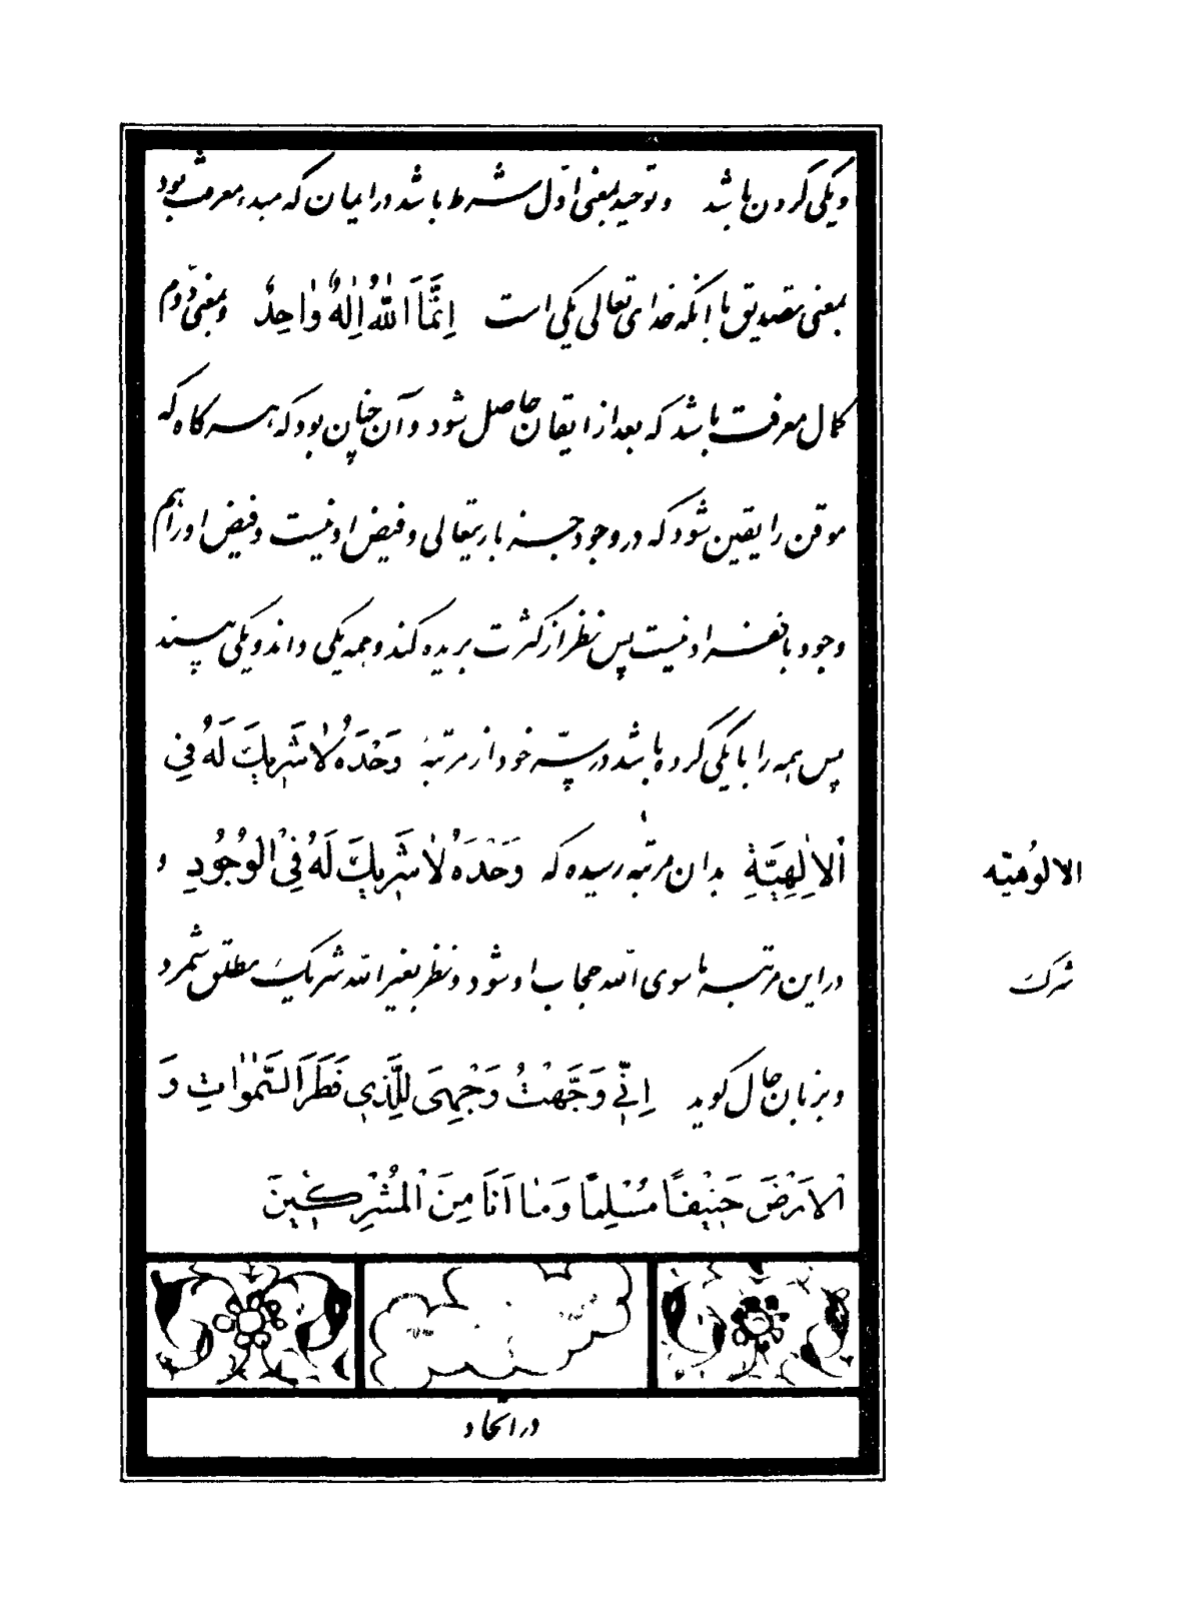 و یکی کردن باشد و توحید بمعنی اوّل شرط باشد در ایمان که مبدء معرفت بود
بمعنی تصدیق با آنکه خدای تعالی یکی است اِنَّمَا اللّٰهُ اِلٰهٌ وٰاحِدٌ و بمعنی دوّم
کمال معرفت باشد که بعد از ایقان حاصل شود و آن چنان بود که هر گاه که
موقن را یقین شود که در وجود جز باریتعالی و فیض او نیست و فیض او را هم
وجود بانفراد نیست پس نظر از کثرت بریده کند و همه یکی داند و یکی بیند
پس همه را با یکی کرده باشد در سرّ خود از مرتبهٔ وَحْدَهُ لاٰ شَرِيكَ لَهُ فِي
الاِلٰهِيَّةِ بدان مرتبه رسیده که وَحْدَهُ لاٰ شَرِيكَ لَهُ فِي الْوُجُودِ و
در این مرتبه ما سوی اللّه حجاب او شود و نظر بغیر اللّه شریک مطلق شمرد
و بزبان حال گوید اِنّي وَجَّهْتُ وَجْهِيَ لِلَّذي فَطَرَ السَّمٰوٰاتِ وَ
الاَرْضَ حَنيفًا مُسْلِمًا وَمٰا اَنَا مِنَ الْمُشْرِكينَ
الالُوهیّه
شرک
در اتّحاد